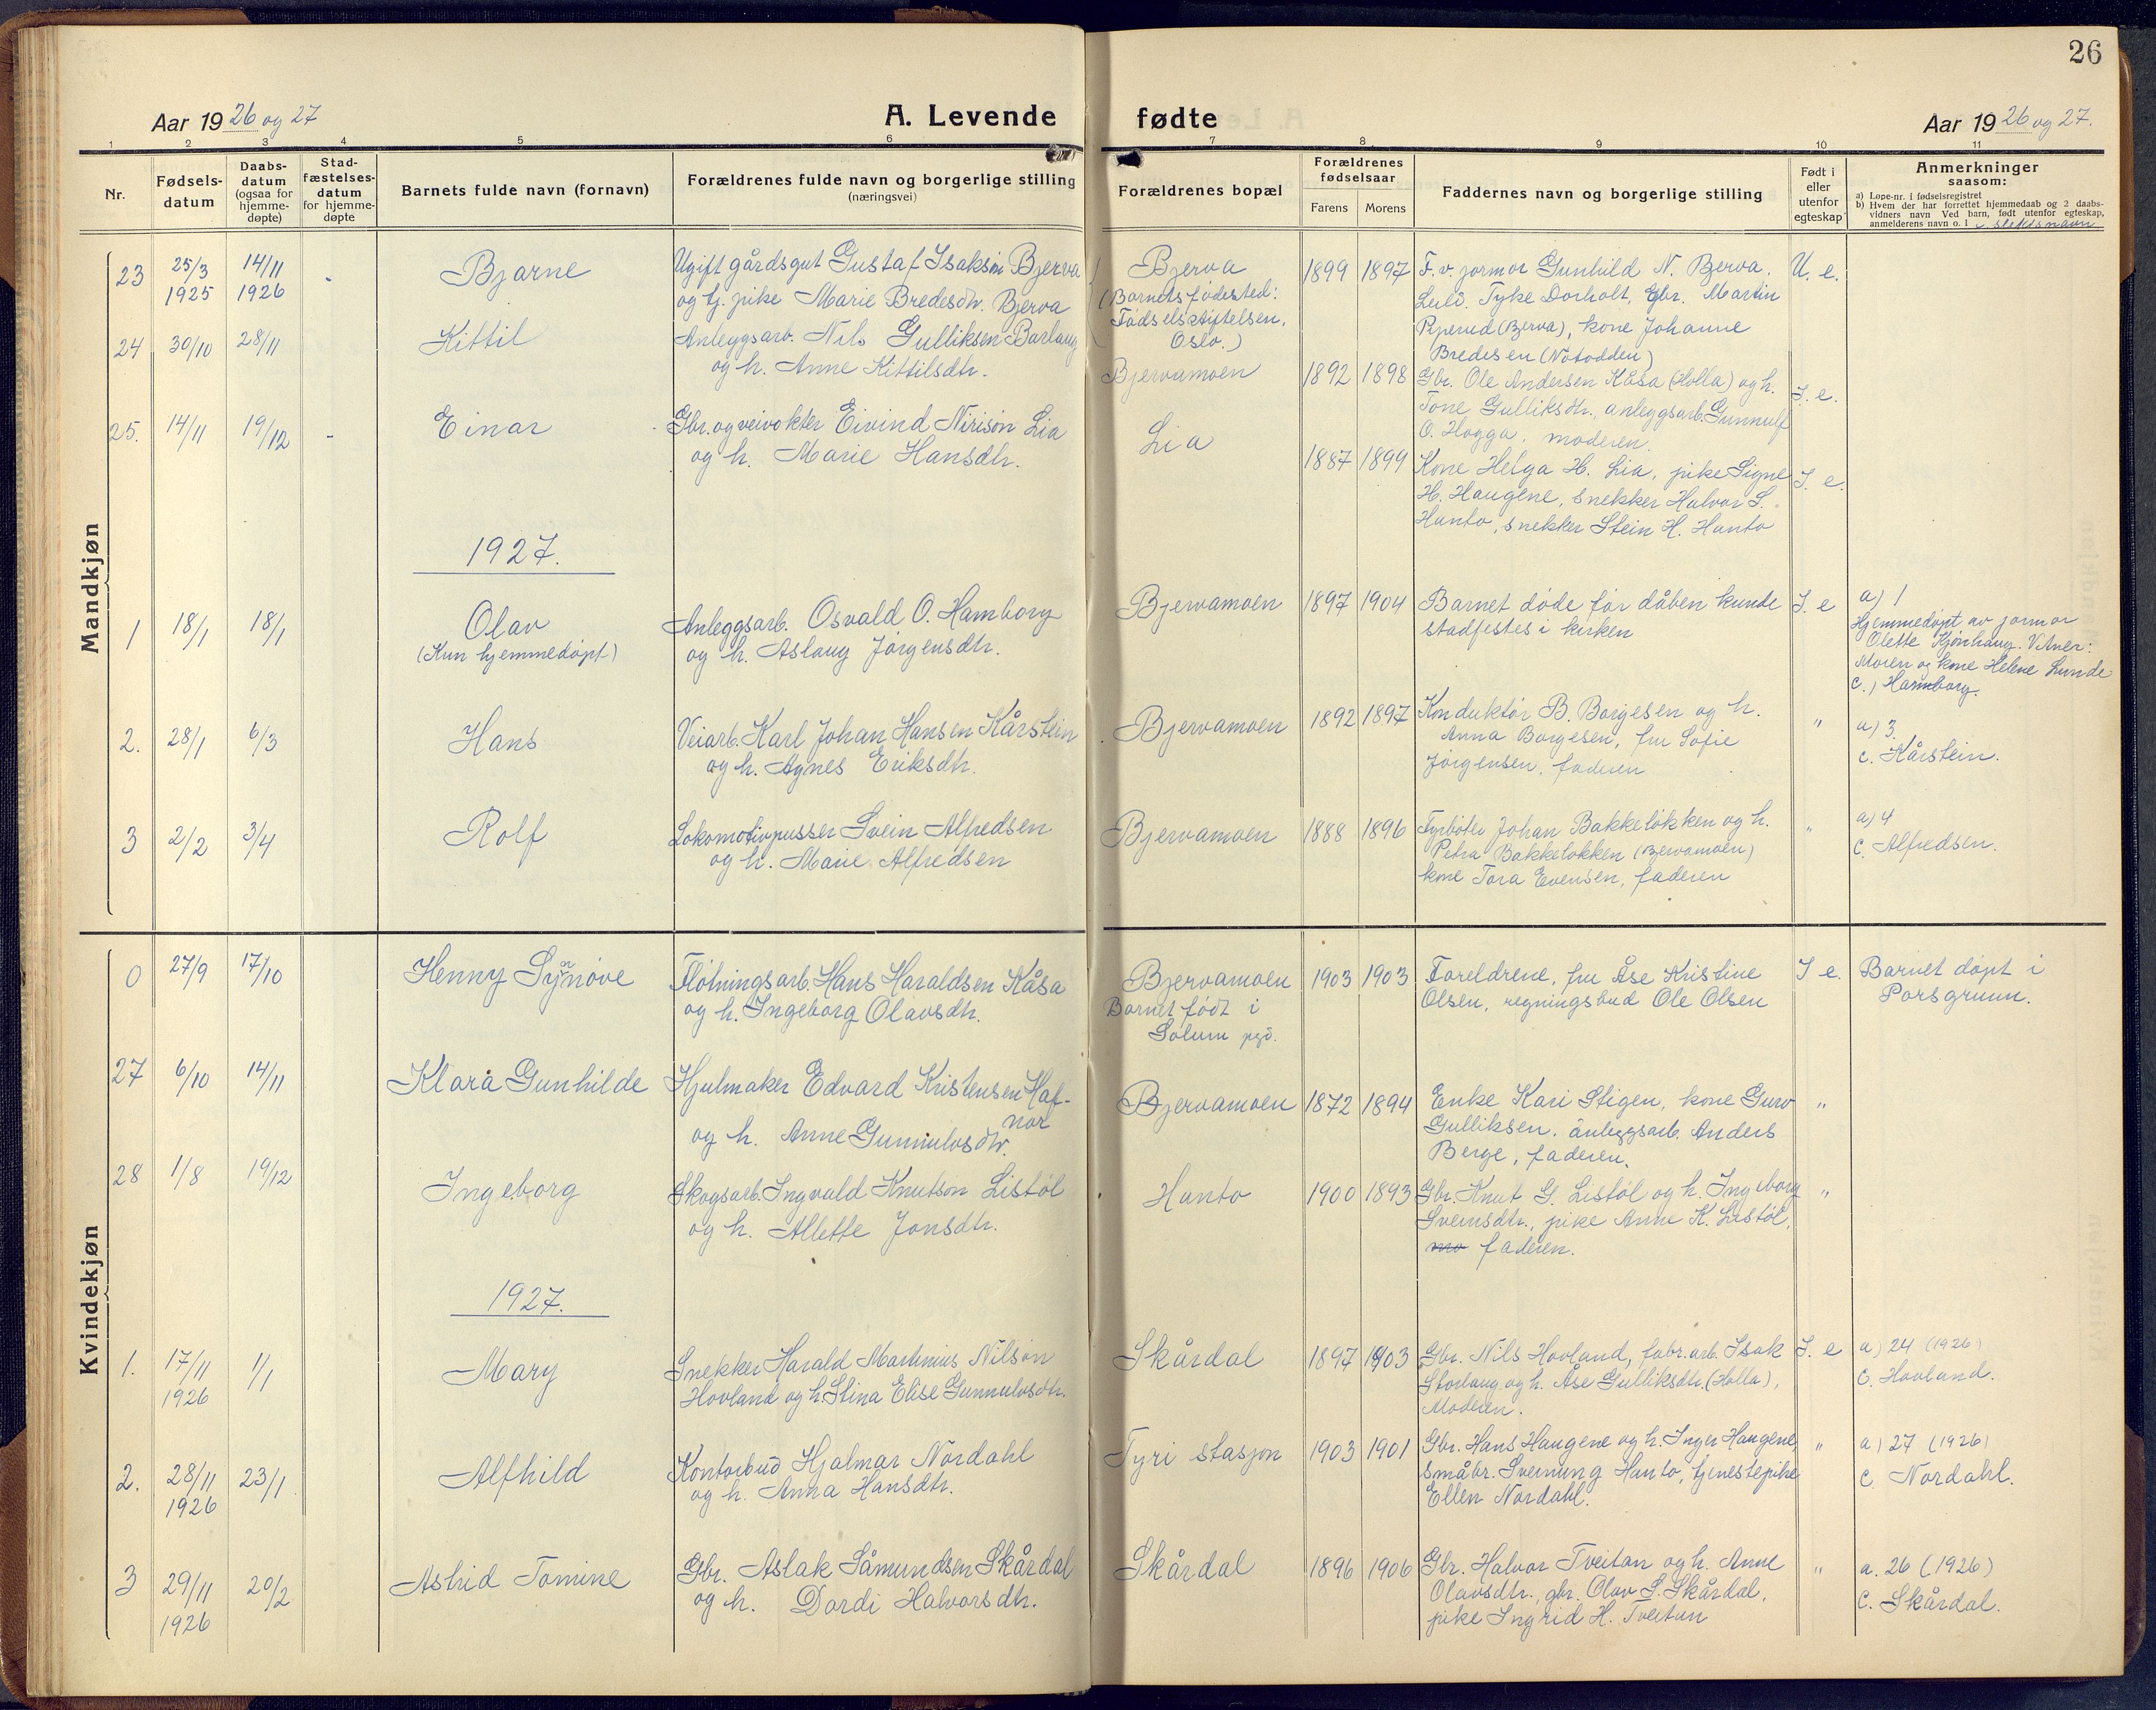 26
Aar 1926 og 27
A. Levende fødte
Aar 1926 og 27.
1 2 3 4 5 6 7 8 9 10 11
Nr.
Fødsels-
datum
Daabs-
datum
(ogsaa for
hjemme-
døpte)
Stad-
fæstelses-
datum
for hjemme-
døpte
Barnets fulde navn (fornavn)
Forældrenes fulde navn og borgerlige stilling
(næringsvei)
Forældrenes bopæl
Forældrenes
fødselsaar
Farens Morens
Faddernes navn og borgerlige stilling
Født i
eller
utenfor
egteskap
Anmerkninger
saasom:
a) Løpe-nr. i fødselsregistret
b) Hvem der har forrettet hjemmedaab og 2 daabs-
vidners navn Ved barn, født utenfor egteskap,
anmelderens navn o. l. c. slektsnavn
Mandkjøn
23
25/3
1925
14/11
1926
-
Bjarne
Ugift gårdsgut Gustaf Isaksøn Bjerva
og g. pike Marie Bredesdtr. Bjerva
Bjerva
(Barnets fødested:
Fødselsstiftelsen,
Oslo.)
1899 1897
F.v. jormor Gunhild N. Bjerva.
Tyke Dorholt, Gbr. Martin
(Bjerva), kone Johanne
Bredesen (Notodden)
U. e.
24
30/10
28/11
Kittil
Anleggsarb. Nils Gulliksen Barlaug
og h. Anne Kittilsdtr.
Bjervamoen
1892 1898
Gbr. Ole Andersen Kåsa (Holla) og h.
Tone Gulliksdtr., anleggsarb. Gunnulf
O. Hogga, moderen.
I. e.
25.
14/11
19/12
-
Einar
Gbr. og veivokter Eivind Nirisøn Lia
og h. Marie Hansdtr.
Lia
1887 1899
Kone Helga H. Lia, pike Signe
H. Haugene, snekker Halvor S.
Hanto, snekker Stein H. Hanto
I. e.
1927.
1
18/1
18/1
Olav
(Kun hjemmedøpt)
Anleggsarb. Osvald O. Hamborg
og h. Aslaug Jørgensdtr.
Bjervamoen
1897 1904
Barnet døde før dåben kunde
stadfestes i kirken
I. e
a) 1
Hjemmedøpt av jormor
Olette Kjønhaug. Vitner:
Moren og kone Helene Lunde
c.) Hamborg.
2.
28/1
6/3
Hans
Veiarb. Karl Johan Hansen Kårstein
og h. Agnes Eriksdtr.
Bjervamoen
1892 1897
Konduktør B. Borgesen og h.
Anna Borgesen, fru Sofie
Jørgensen, faderen
"
a) 3.
c. Kårstein.
3
2/2
3/4
Rolf
Lokomotivpusser Svein Alfredsen
og h. Marie Alfredsen
Bjervamoen
1888 1896
Fyrbøter Johan Bakkeløkken og h.
Petra Bakkeløkken (Bjervamoen)
kone Tora Evensen, faderen
"
a) 4
c. Alfredsen.
Kvindekjøn
0
27/9
17/10
Henny Synøve
Fløtningsarb. Hans Haraldsen Kåsa
og h. Ingeborg Olavsdtr.
Bjervamoen
Barnet født i
Solum pgd.
1903 1903
Foreldrene, fru Åse Kristine
Olsen, regningsbud Ole Olsen
I e.
Barnet døpt i
Porsgrunn.
27
6/10
14/11
Klara Gunhilde
Hjulmaker Edvard Kristensen Haf-
nor
og h. Anne Gunnulvsdtr.
Bjervamoen
1872 1894
Enke Kari Stigen, kone Guro
Gulliksen, anleggsarb. Anders
Berge, faderen.
"
28
1/8
19/12
Ingeborg
Skogsarb. Ingvald Knutson Listøl
og h. Allette Jonsdtr.
Hanto
1900 1893
Gbr. Knut G. Listøl og h. Ingeborg
Sveinsdtr., pike Anne K. Listøl,
mo faderen.
"
1927.
1.
17/11
1926
1/1
Mary
Snekker Harald Martinius Nilsøn
Hovland og h. Stina Elise Gunnulvsdtr.
Skårdal
1897 1903
Gbr. Nils Hovland, fabr.arb. Isak
Storlaug og h. Åse Gulliksdtr. (Holla),
Moderen.
I. e
a) 24 (1926)
c. Hovland.
2.
28/11
1926
23/1
Alfhild
Kontorbud Hjalmar Nordahl
og h. Anna Hansdtr.
Tyri stasjon
1903 1901
Gbr. Hans Haugene og h. Inger Haugene,
småbr. Sveinung Hanto, tjenestepike
Ellen Nordahl.
"
a) 27 (1926)
c. Nordahl.
3
29/11
1926
20/2
Astrid Tomine
Gbr. Aslak Såmundsen Skårdal
og h. Dordi Halvorsdtr.
Skårdal
1896 1906
Gbr. Halvor Tveitan og h. Anne
Olavsdtr., gbr. Olav S. Skårdal,
pike Ingrid H. Tveitan
"
a. 26 (1926)
c. Skårdal.